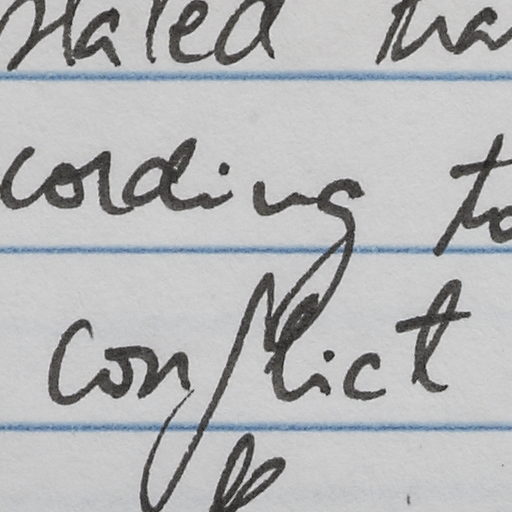 stated tha
cording to
conflict